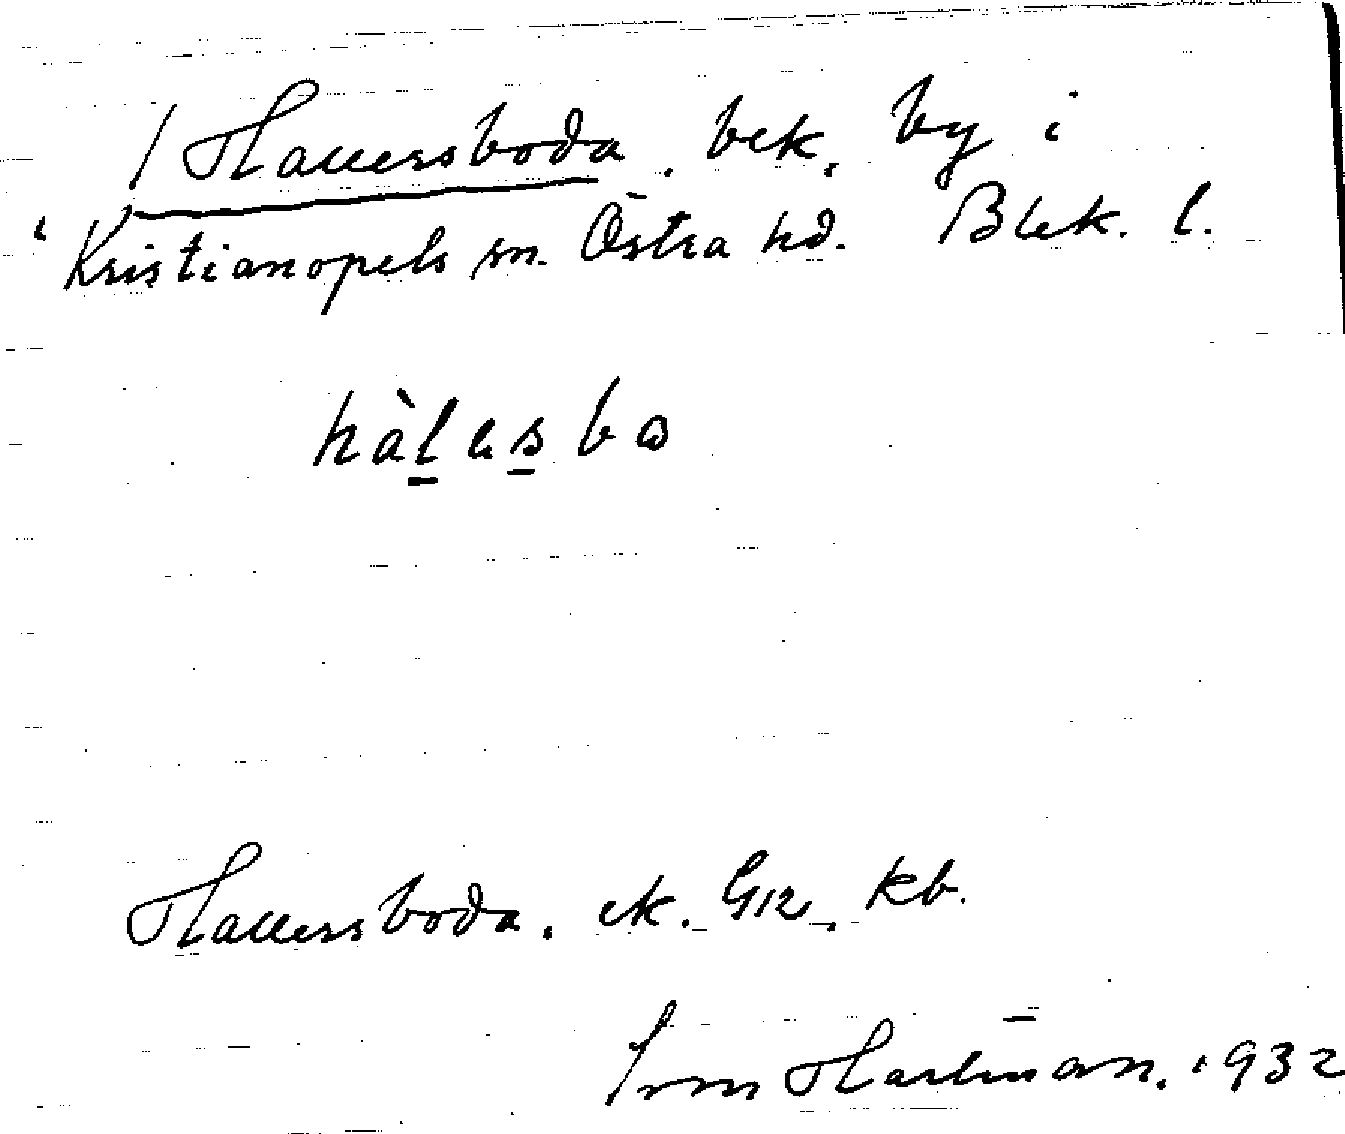 / Hallersboda, bek. by i
Kristianopels sn. Östra hd. Blek. l.
hàlesbo
Hallersboda. ek. G12, kb.
Hartman. 1932